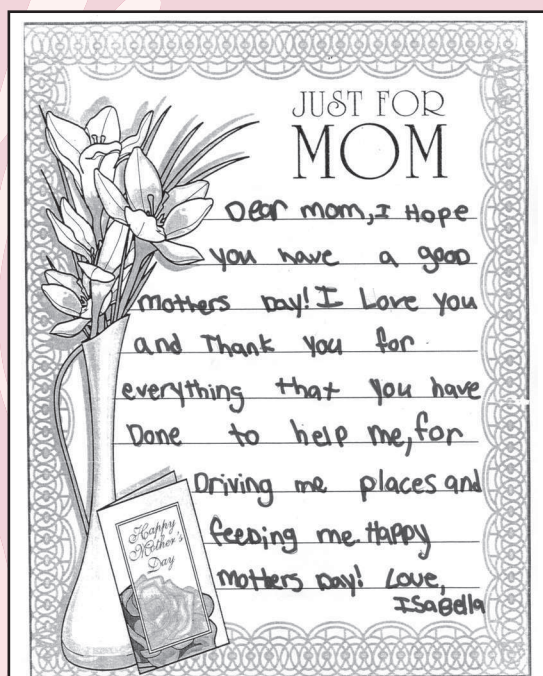 JUST FOR
MOM
Dear mom, I Hope
you have a good
mothers Day! I Love you
and Thank you for
everything that you have
Done to help me, for
Driving me places and
feeding me. Happy
mothers Day! Love,
ISaBella
Happy
Mother's
Day